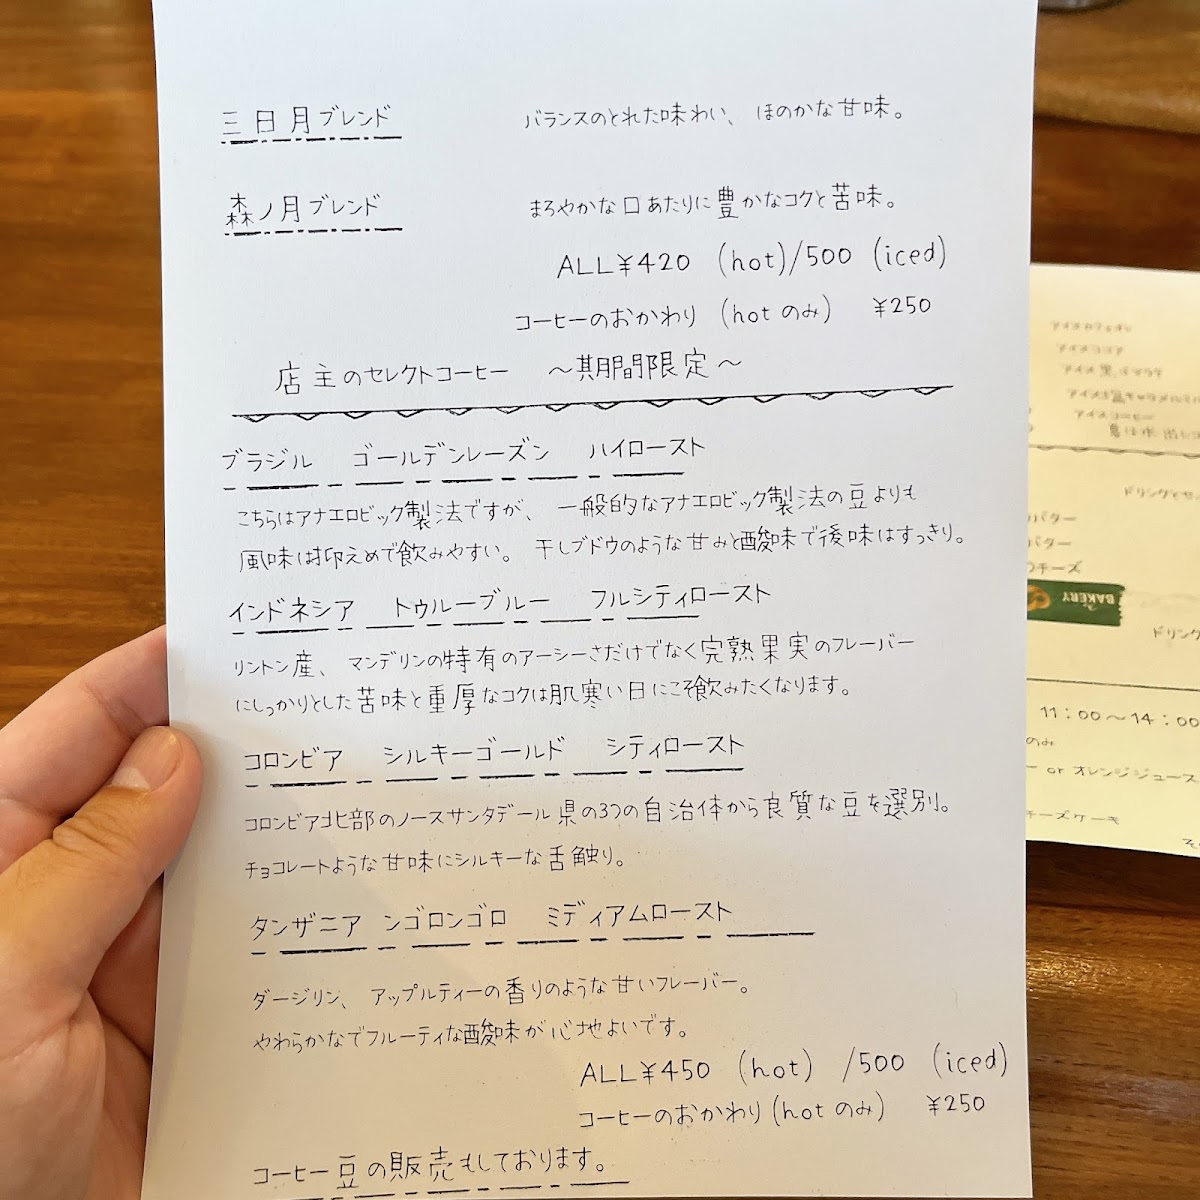 三日月ブレンド　バランスのとれた味わい、ほのかな甘味。
森ノ月ブレンド　まろやかな口あたりに豊かなコクと苦味。
ALL¥420 (hot)/500 (iced)
コーヒーのおかわり (hotのみ) ¥250
店主のセレクトコーヒー 〜期間限定〜
ブラジル ゴールデンレーズン ハイロースト
こちらはアナエロビック製法ですが、一般的なアナエロビック製法の豆よりも
風味は抑えめで飲みやすい。干しブドウのような甘みと酸味で後味はすっきり。
インドネシア トゥルーブルー フルシティロースト
リントン産、マンデリンの特有のアーシーさだけでなく完熟果実のフレーバー
にしっかりとした苦味と重厚なコクは肌寒い日にこそ飲みたくなります。
コロンビア シルキーゴールド シティロースト
コロンビア北部のノースサンタデール県の3つの自治体から良質な豆を選別。
チョコレートような甘味にシルキーな舌触り。
タンザニア ンゴロンゴロ ミディアムロースト
ダージリン、アップルティーの香りのような甘いフレーバー。
やわらかなでフルーティな酸味が心地よいです。
ALL¥450 (hot) /500 (iced)
コーヒーのおかわり(hotのみ) ¥250
コーヒー豆の販売もしております。
アイスココア
アイスコーヒー
バター
バター
チーズ
BAKERY
ドリンク
11:00〜14:00
のみ
or オレンジジュース
チーズケーキ